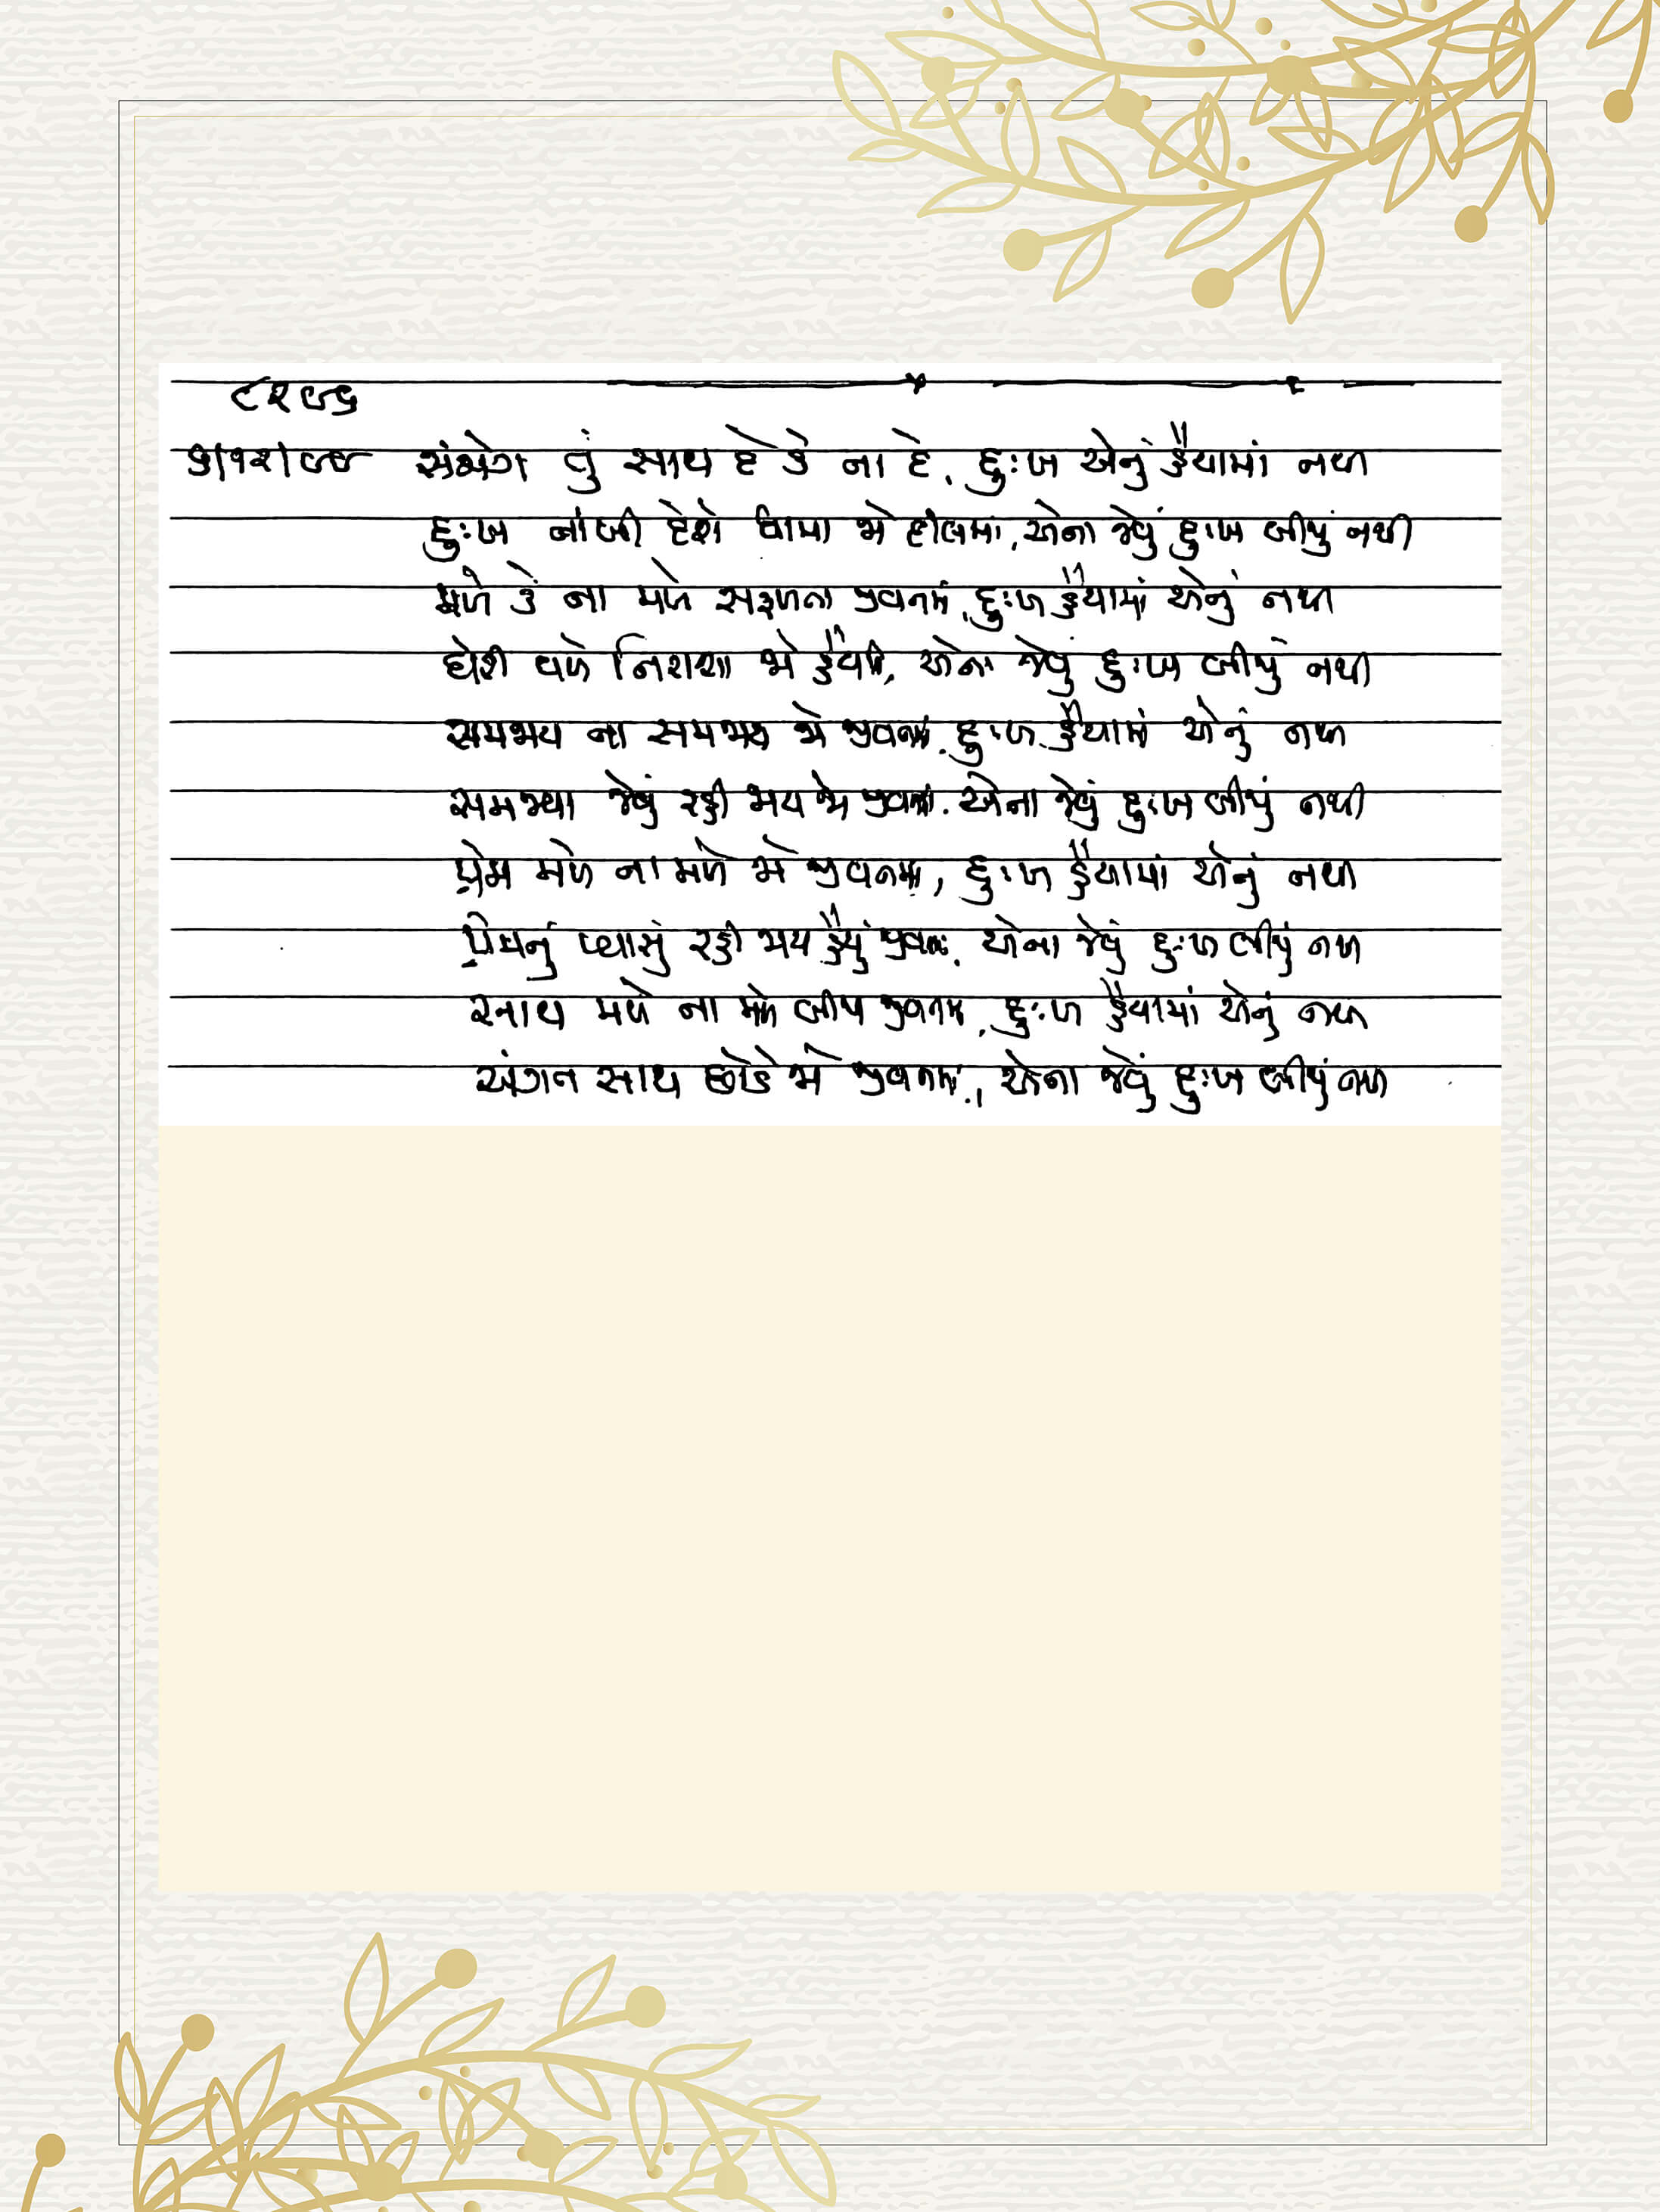 ૮૨૭૬
૭/૧૨/૯૯ સંજોગ તું સાથ દે કે ના દે, દુઃખ એનું હૈયામાં નથી
દુઃખ નાંખી દેશે ધામા જો દીલમાં, એના જેવું દુઃખ બીજું નથી
મળે કે ના મળે સફળતા જીવનમાં, દુઃખ હૈયામાં એનું નથી
ઘેરી વળે નિરાશા જો હૈયાને, એના જેવું દુઃખ બીજું નથી
સમજાય ના સમજાય જો જીવનમાં, દુઃખ હૈયામાં એનું નથી
સમજ્યા જેવું રહી જાય જો જીવનમાં, એના જેવું દુઃખ બીજું નથી
પ્રેમ મળે ના મળે જો જીવનમાં, દુઃખ હૈયામાં એનું નથી
પ્રેમનું પ્યાસું રહી જાય હૈયું જીવનમાં, એના જેવું દુઃખ બીજું નથી
સાથ મળે ના મળે બીજા જીવનમાં, દુઃખ હૈયામાં એનું નથી
અંગત સાથ છોડે જો જીવનમાં, એના જેવું દુઃખ બીજું નથી